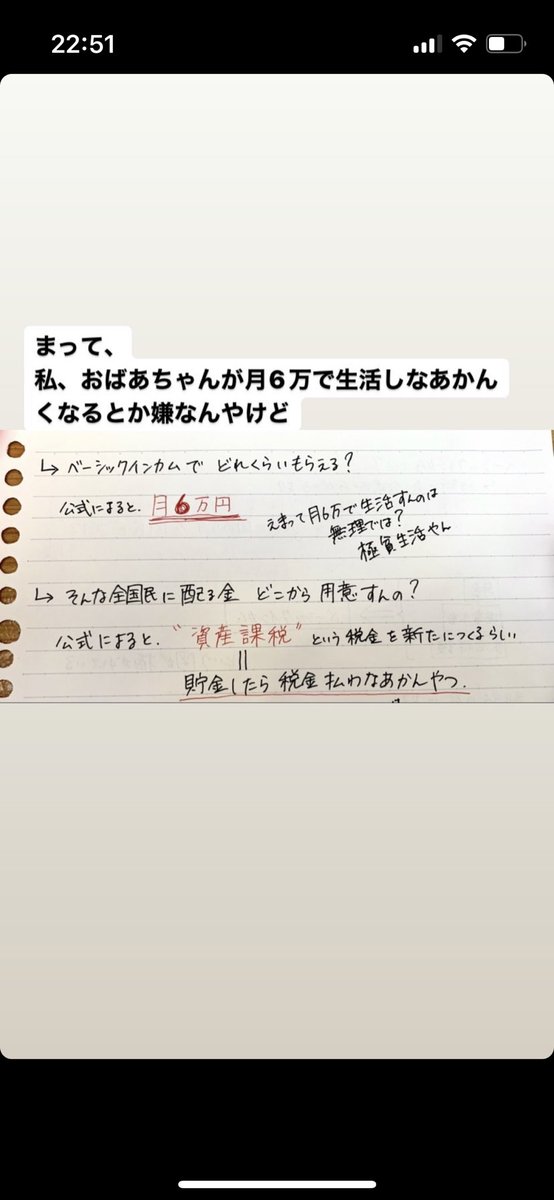 22:51
まって、
私、おばあちゃんが月6万で生活しなあかん
くなるとか嫌なんやけど
↳ ベーシックインカムで どれくらいもらえる？
公式によると、月6万円
えまって月6万で生活すんのは
無理では？
極貧生活やん
↳ そんな全国民に配る金 どこから 用意すんの？
公式によると、"資産課税" という 税金を新たにつくるらしい
||
貯金したら 税金 払わなあかんやつ.